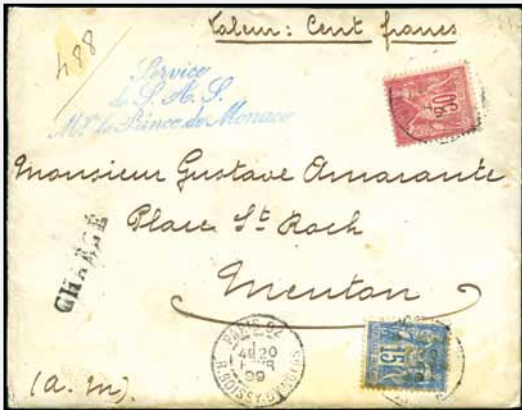 Valeur: Cent francs
488
Service
de S. A. S.
Mgr le Prince de Monaco
50
Monsieur Gustave Amarante
Place St Roch
Menton
CHARGÉ
PARIS 92
4E 20
99
R. BOISSY-D'ANGLAS
15
(A. M).